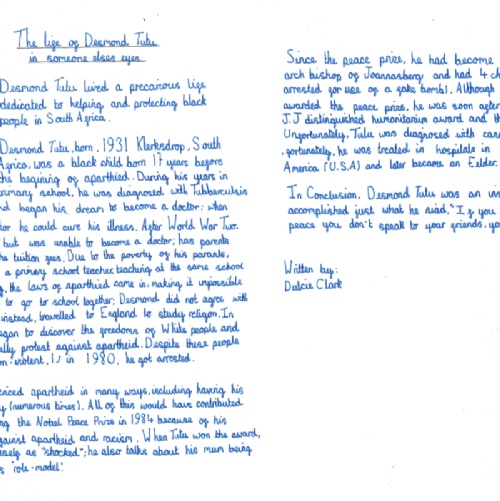 The life of Desmond Tutu
in someone elses eyes
Desmond Tutu lived a precarious life
dedicated to helping and protecting black
people in South Africa.
Desmond Tutu, born, 1931 Klerksdrop, South
Africa, was a black child born 17 years before
the begining of apartheid. During his years in
primary school, he was diagnosed with Tubberculsis
and began his dream to become a doctor: when
he could cure his illness. After World War Two.
but was unable to become a doctor; has parents
the tuition fees. Due to the poverty of his parents,
a primary school teacher, teaching at the same school
the laws of apartheid came in, making it impossible
to go to school together; Desmond did not agree with
instead, travelled to England to study religion. In
began to discover the freedoms of White people and
protest against apartheid. Despite these people
violent, in 1980, he got arrested.
apartheid in many ways, including having his
(numerous times). All of this would have contributed
the Nobel Peace Prize in 1984 because of his
against apartheid and racism. When Tutu won the award,
as "shocked"; he also talks about his mum being
his 'role-model'.
Since the peace prize, he had become
arch bishop of Joannasberg and had 4
arrested for use of a fake bomb). Although
awarded the peace prize, he was soon after
J.J distinguished humanitarian award and
Unfortunately, Tutu was diagnosed with
he was treated in hospitals in
America (U.S.A) and later became an Eelder.
In Conclusion, Desmond Tutu was an
accomplished just what he siad, "If you
peace you don't speak to your friends,
Written by:
Dulcie Clark